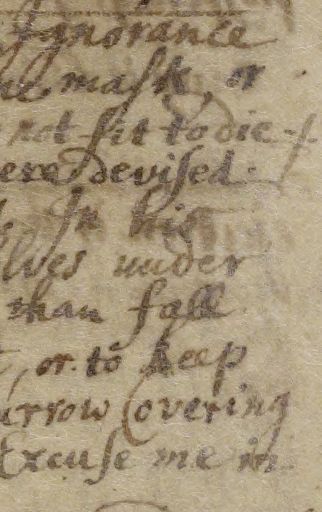 Ignorance
maſk, or
not fit to die
Deviſed.
In his
lves under
than fall
, or to keep
arrow Covering
Excuſe me in